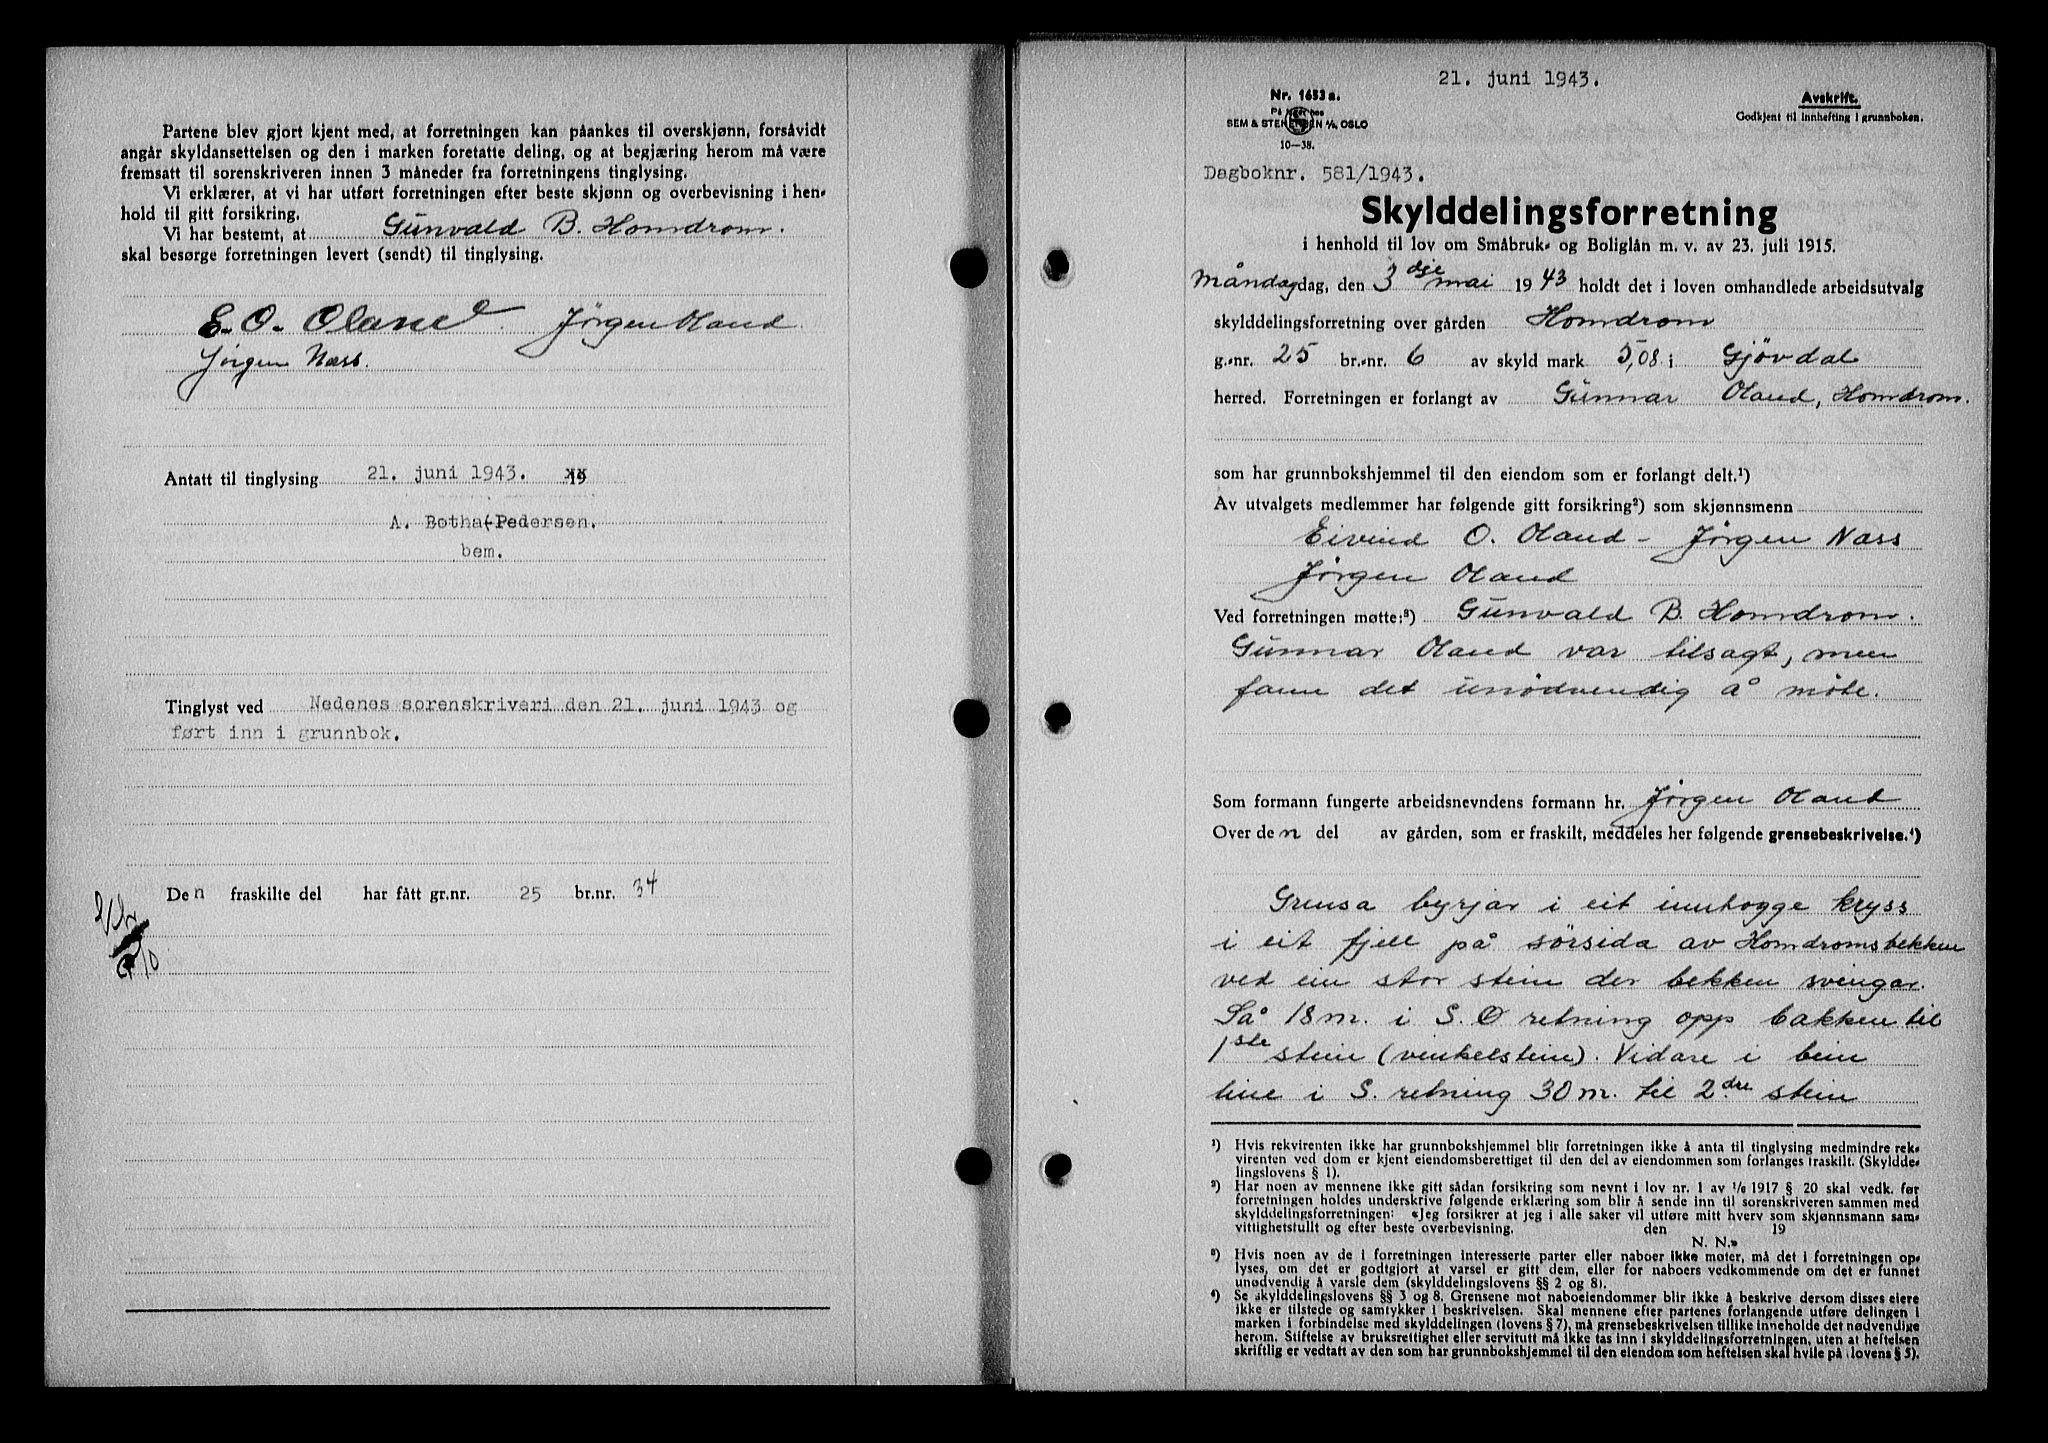 Partene blev gjort kjent med, at forretningen kan påankes til overskjønn, forsåvidt
angår skyldansettelsen og den i marken foretatte deling, og at begjæring herom må være
fremsatt til sorenskriveren innen 3 måneder fra forretningens tinglysing.
Vi erklærer, at vi har utført forretningen efter beste skjønn og overbevisning i hen-
hold til gitt forsikring.
Vi har bestemt, at Gunvald B. Homdrom.
skal besørge forretningen levert (sendt) til tinglysing.
E. O. Oland. Jørgen Oland
Jørgen Næss.
Antatt til tinglysing 21. juni 1943. 19
A. Botha-Pedersen.
bem.
Tinglyst ved Nedenes sorenskriveri den 21. juni 1943 og
ført inn i grunnbok.
Den fraskilte del har fått gr.nr. 25 br.nr. 34
21. juni 1943.
Nr. 1653a.
På lager hos
SEM & STENERSEN A/S, OSLO
10—38.
Avskrift.
Godkjent til innhefting i grunnboken.
Dagboknr. 581/1943.
Skylddelingsforretning
i henhold til lov om Småbruk- og Boliglån m. v. av 23. juli 1915.
Måndagdag, den 3dje mai 1943 holdt det i loven omhandlede arbeidsutvalg
skylddelingsforretning over gården Homdrom
g.-nr. 25 br.-nr. 6 av skyld mark 5,08 i Gjövdal
herred. Forretningen er forlangt av Gunnar Oland, Homdrom.
som har grunnbokshjemmel til den eiendom som er forlangt delt.¹)
Av utvalgets medlemmer har følgende gitt forsikring²) som skjønnsmenn
Eivind O. Oland - Jørgen Næss
Jørgen Oland
Ved forretningen møtte:³) Gunvald B. Homdrom.
Gunnar Oland var tilsagt, men
fann det unödvendig å möte.
Som formann fungerte arbeidsnevndens formann hr. Jørgen Oland
Over den del av gården, som er fraskilt, meddeles her følgende grensebeskrivelse.⁴)
Grensa byrjar i eit innhogge kryss
i eit fjell på sörsida av Homdromsbekken
ved ein stor stein der bekken svingar.
Så 18 m. i S. Ö retning opp bakken til
1ste stein (vinkelstein). Vidare i bein
line i S. retning 30 m. til 2dre stein
¹) Hvis rekvirenten ikke har grunnbokshjemmel blir forretningen ikke å anta til tinglysing medmindre rek-
virenten ved dom er kjent eiendomsberettiget til den del av eiendommen som forlanges fraskilt. (Skyldde-
lingslovens § 1).
²) Har noen av mennene ikke gitt sådan forsikring som nevnt i lov nr. 1 av 1/6 1917 § 20 skal vedk. før
forretningen holdes underskrive følgende erklæring som blir å sende inn til sorenskriveren sammen med
skylddelingsforretningen: «Jeg forsikrer at jeg i alle saker vil utføre mitt hverv som skjønnsmann sam-
vittighetsfullt og efter beste overbevisning. den 19
N. N.»
³) Hvis noen av de i forretningen interesserte parter eller naboer ikke møter, må det i forretningen op-
lyses, om det er godtgjort at varsel er gitt dem, eller for naboers vedkommende om det er funnet
unødvendig å varsle dem (skylddelingslovens §§ 2 og 8).
⁴) Se skylddelingslovens §§ 3 og 8. Grensene mot naboeiendommer blir ikke å beskrive dersom disses eiere
ikke er tilstede og samtykker i beskrivelsen. Skal mennene efter partenes forlangende utføre delingen i
marken i forbindelse med skylddelingen (lovens § 7), må grensebeskrivelsen tillike inneholde det nødvendige
herom. Stiftelse av bruksrettighet eller servitutt må ikke tas inn i skylddelingsforretningen, uten at heftelsen
skriftlig er vedtatt av den som har grunnbokshjemmel til den eiendom som heftelsen skal hvile på (lovens § 5).